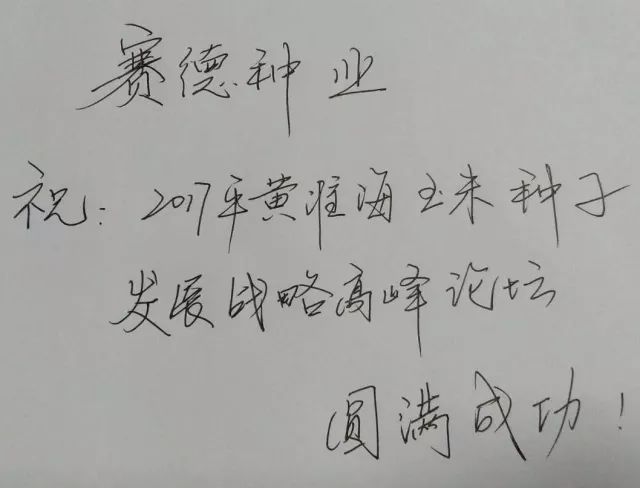 赛德种业
祝：2017年黄淮海玉米种子
发展战略高峰论坛
圆满成功！